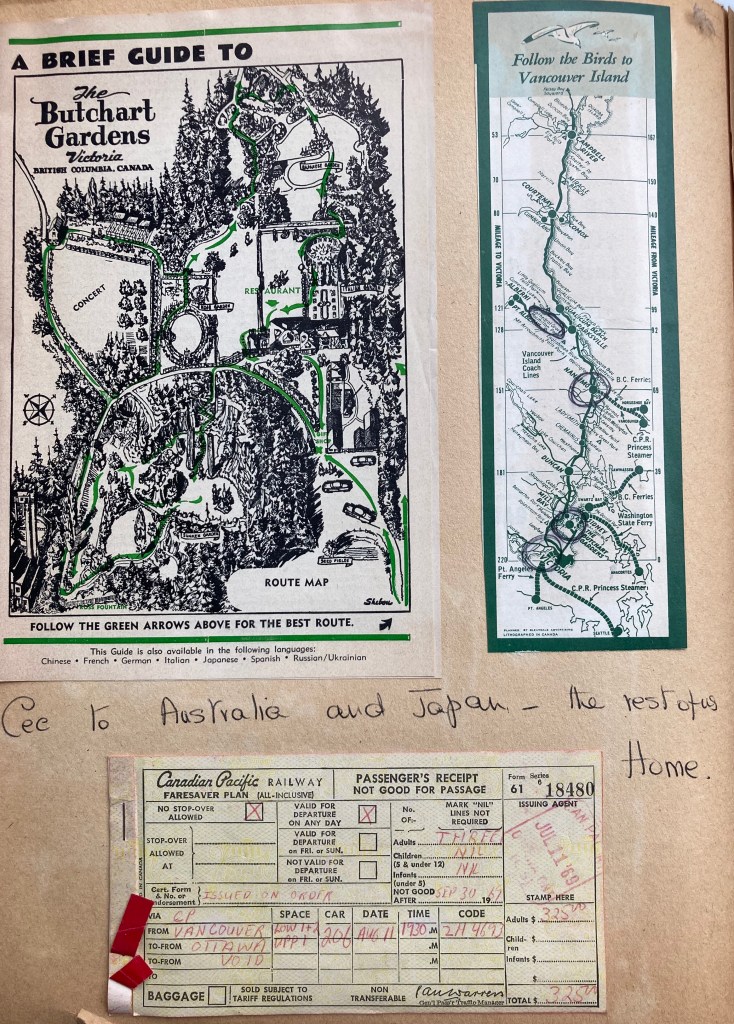 A BRIEF GUIDE TO
The
Butchart
Gardens
Victoria
BRITISH COLUMBIA, CANADA
CONCERT
RESTAURANT
JAPANESE GARDEN
SUNKEN GARDEN
ROSS FOUNTAIN
SEED FIELDS
ROUTE MAP
FOLLOW THE GREEN ARROWS ABOVE FOR THE BEST ROUTE.
This Guide is also available in the following languages:
Chinese • French • German • Italian • Japanese • Spanish • Russian/Ukrainian
Follow the Birds to
Vancouver Island
53
CAMPBELL
RIVER
167
70
150
COURTENAY
80
COMOX
140
CUMBERLAND
MILEAGE TO VICTORIA
MILEAGE FROM VICTORIA
121
99
128
92
PARKSVILLE
Vancouver
Island
Coach
Lines
B.C. Ferries
151
69
HORSESHOE BAY
VANCOUVER
LADYSMITH
CHEMAINUS
C.P.R.
Princess
Steamer
DUNCAN
181
39
TSAWWASSEN
B.C. Ferries
SWARTZ BAY
Washington
State Ferry
ANACORTES
Pt. Angeles
Ferry
220
0
C.P.R. Princess Steamer
PT. ANGELES
SEATTLE
LITHOGRAPHED IN CANADA
Cec to Australia and Japan - the rest of us
Home.
Canadian Pacific RAILWAY
FARESAVER PLAN (ALL-INCLUSIVE)
PASSENGER'S RECEIPT
NOT GOOD FOR PASSAGE
Form Series
61 6 18480
NO STOP-OVER
ALLOWED X
VALID FOR
DEPARTURE
ON ANY DAY X
No.
OF:-
MARK "NIL"
LINES NOT
REQUIRED
ISSUING AGENT
STOP-OVER
ALLOWED
AT
VALID FOR
DEPARTURE
on FRI. or SUN.
NOT VALID FOR
DEPARTURE
on FRI. or SUN.
Adults THREE
Children NIL
(5 & under 12)
Infants NIL
(under 5)
NOT GOOD
AFTER SEP 30 1969
JUL 11 '69
STAMP HERE
Cert. Form
& No. or
Endorsement) ISSUED ON ORDER
VIA CP
SPACE CAR DATE TIME CODE
FROM VANCOUVER
206 AUG 11 1930 .M
TO-FROM OTTAWA .M
TO-FROM VOID .M
TO
Adults $
Child-
ren
Infants $
$
TOTAL $
BAGGAGE
SOLD SUBJECT TO
TARIFF REGULATIONS
NON
TRANSFERABLE
Gen'l Pass'r Traffic Manager